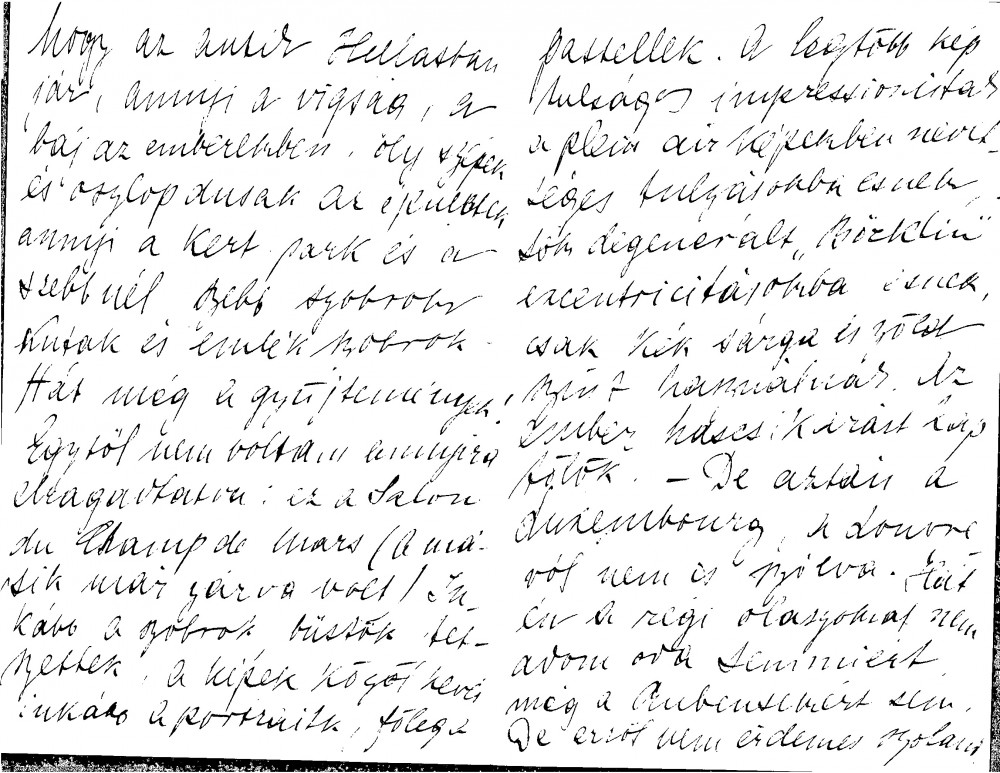 hogy az antik Hellasban
jár, annyi a vigság, a
báj az emberekben, oly szépek
és oszlopdusak az épületek
annyi a kert park és a
szebbnél szebb szobrok
kutak és emlék szobrok.
Hát még a gyüjtemények,
Egytöl nem voltam annyira
elragadtatva: ez a Salon
du Champ de Mars (a má-
sik már zárva volt) In-
kább a szobrok büstök tet-
szettek, a képek közöl kevés
inkább a portraitk, föleg a
pastellek. A legtöbb kép
tulságos impressionista
a plein air képekben nevet-
séges tulzásokba esnek
sök degenerált „Böcklin"
excentricitásokba esnek,
csak kék sárga és zöld
szint használnak. Az
ember hascsikarást kap
tölök. – De aztán a
Luxembourg, a Louvre
ról nem is szólva. Hát
én a régi olaszokat nem
adom oda semmiért
még a Rubensekért sem.
De erröl nem érdemes szólani